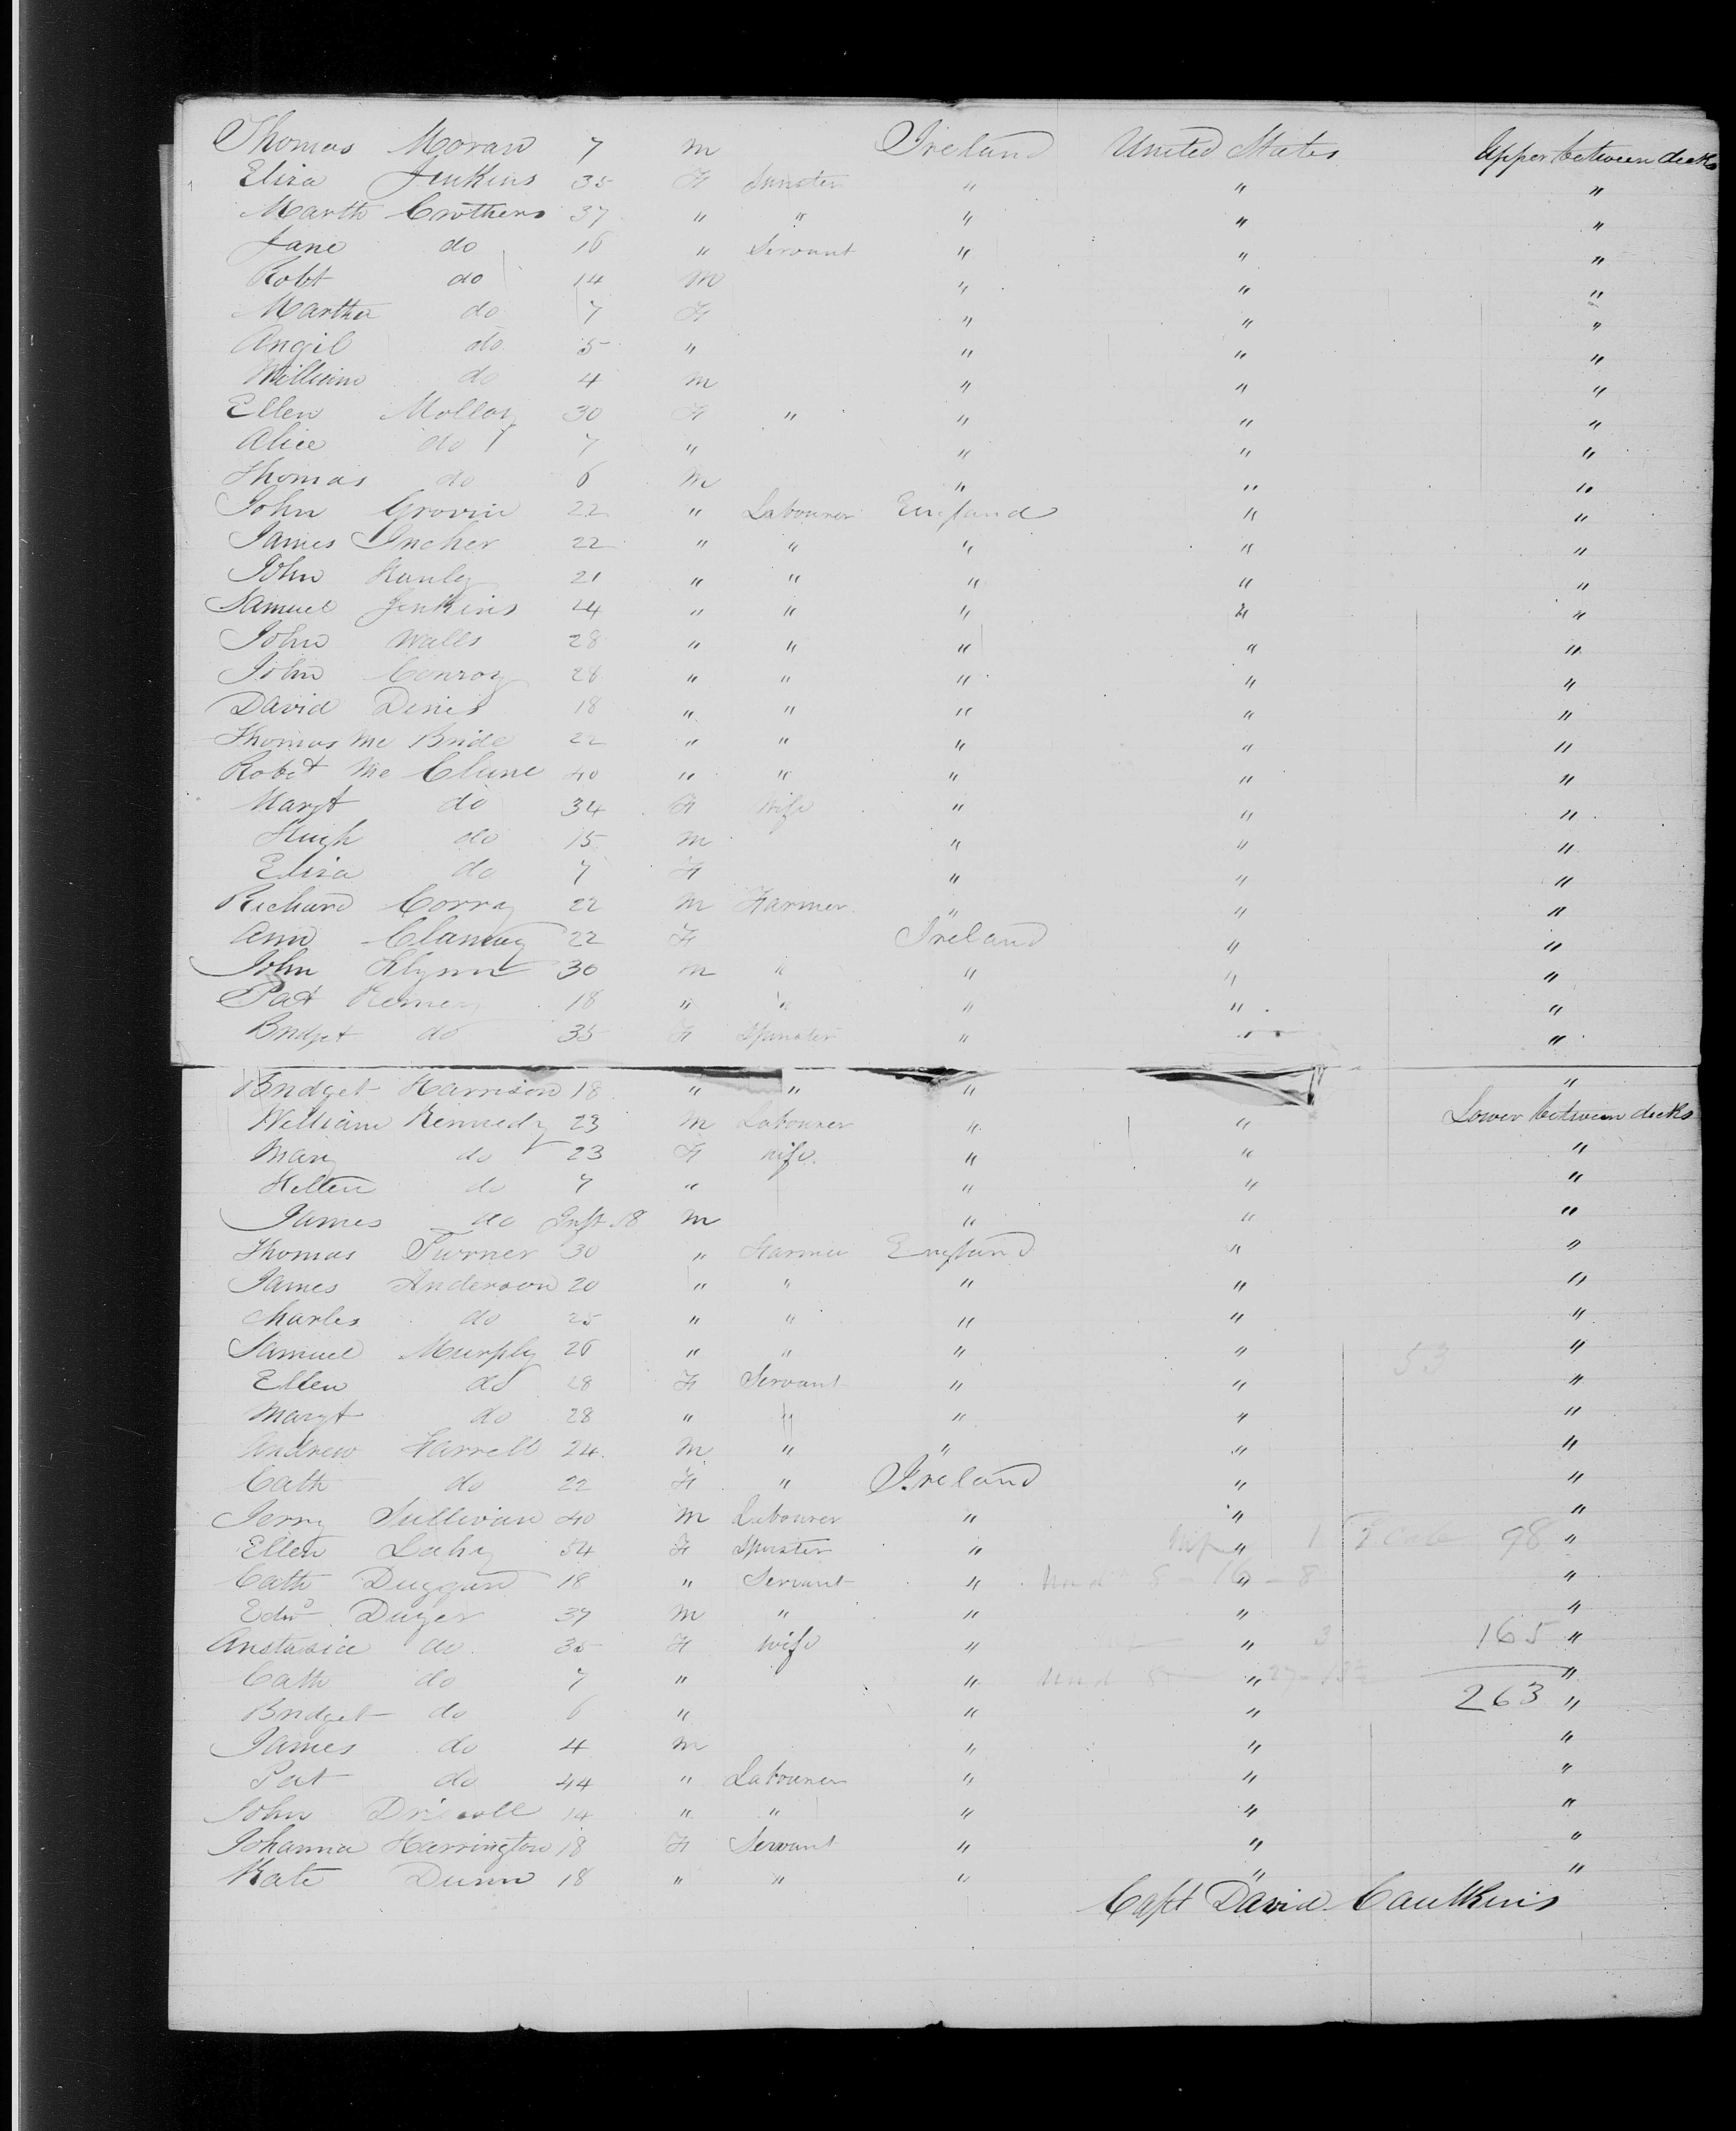 Thomas Moran 7 m Ireland United States Upper between decks
Eliza Jenkins 35 F Spinster " " "
Marth Crothers 37 " " " " "
Jane do 16 " Servant " " "
Robt do 14 m " " "
Martha do 7 F " " "
Angil do 5 " " " "
William do 4 m " " "
Ellen Molloy 30 F " " " "
Alice do 7 " " " "
Thomas do 6 m " " "
John Grovin 22 " Labourer England " "
James Incher 22 " " " " "
John Hanly 21 " " " " "
Samuel Jenkins 24 " " " " "
John Walls 28 " " " " "
John Conroy 28 " " " " "
David Denis 18 " " " " "
Thomas Mc Bride 22 " " " " "
Robet Mc Clune 40 " " " " "
Margt do 34 F Wife " " "
Hugh do 15 m " " "
Eliza do 7 F " " "
Richard Corray 22 m Farmer " " "
Ann 22 F Ireland " "
John Flynn 30 m " " " "
Pat 18 " " " " "
Bridget do 35 F Spinster " " "
Bridget Harrison 18 " " " "
William Kennedy 23 m Labourer " " Lower between decks
Mary do 23 F wife " " "
Hellen do 7 " " " "
James do Inft 18 m " " "
Thomas Turner 30 " Farmer England " "
James Anderson 20 " " " " "
Charles do 25 " " " " "
Samuel Murphy 26 " " " " "
53
Ellen do 28 F Servant " " "
Margt do 28 " " " " "
Andrew Farrell 24 m " " " "
Cath do 22 F " Ireland " "
Jerry Sullivan 40 m Labourer " " "
Ellen Lahy 54 F Spinster " " 1 98 "
Cath Duggan 18 " Servant " 8 - 16 - 8 " "
Edwd Dwyer 37 m " " " "
Anstasia do 35 F wife " " 3 165 "
Cath do 7 " " " "
Bridget do 6 " " " 263 "
James do 4 m " " "
Pat do 44 " Labourer " " "
John Driscoll 14 " " " " "
Johanna Harrington 18 F Servant " " "
Kate Dunn 18 " " " " "
Capt David Caulkins